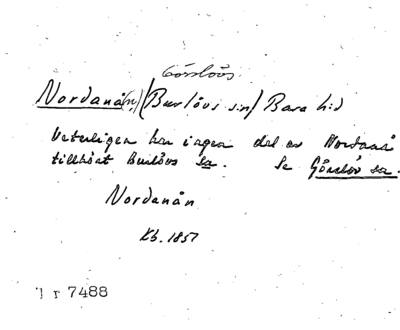 Görslövs
Nordanå(n) (Burlövs sn) Bara hd
Veterligen har ingen del av Nordanå
tillhört Burlövs sn. Se Görslöv sn.
Nordanån
Kb. 1857
1 r 7488